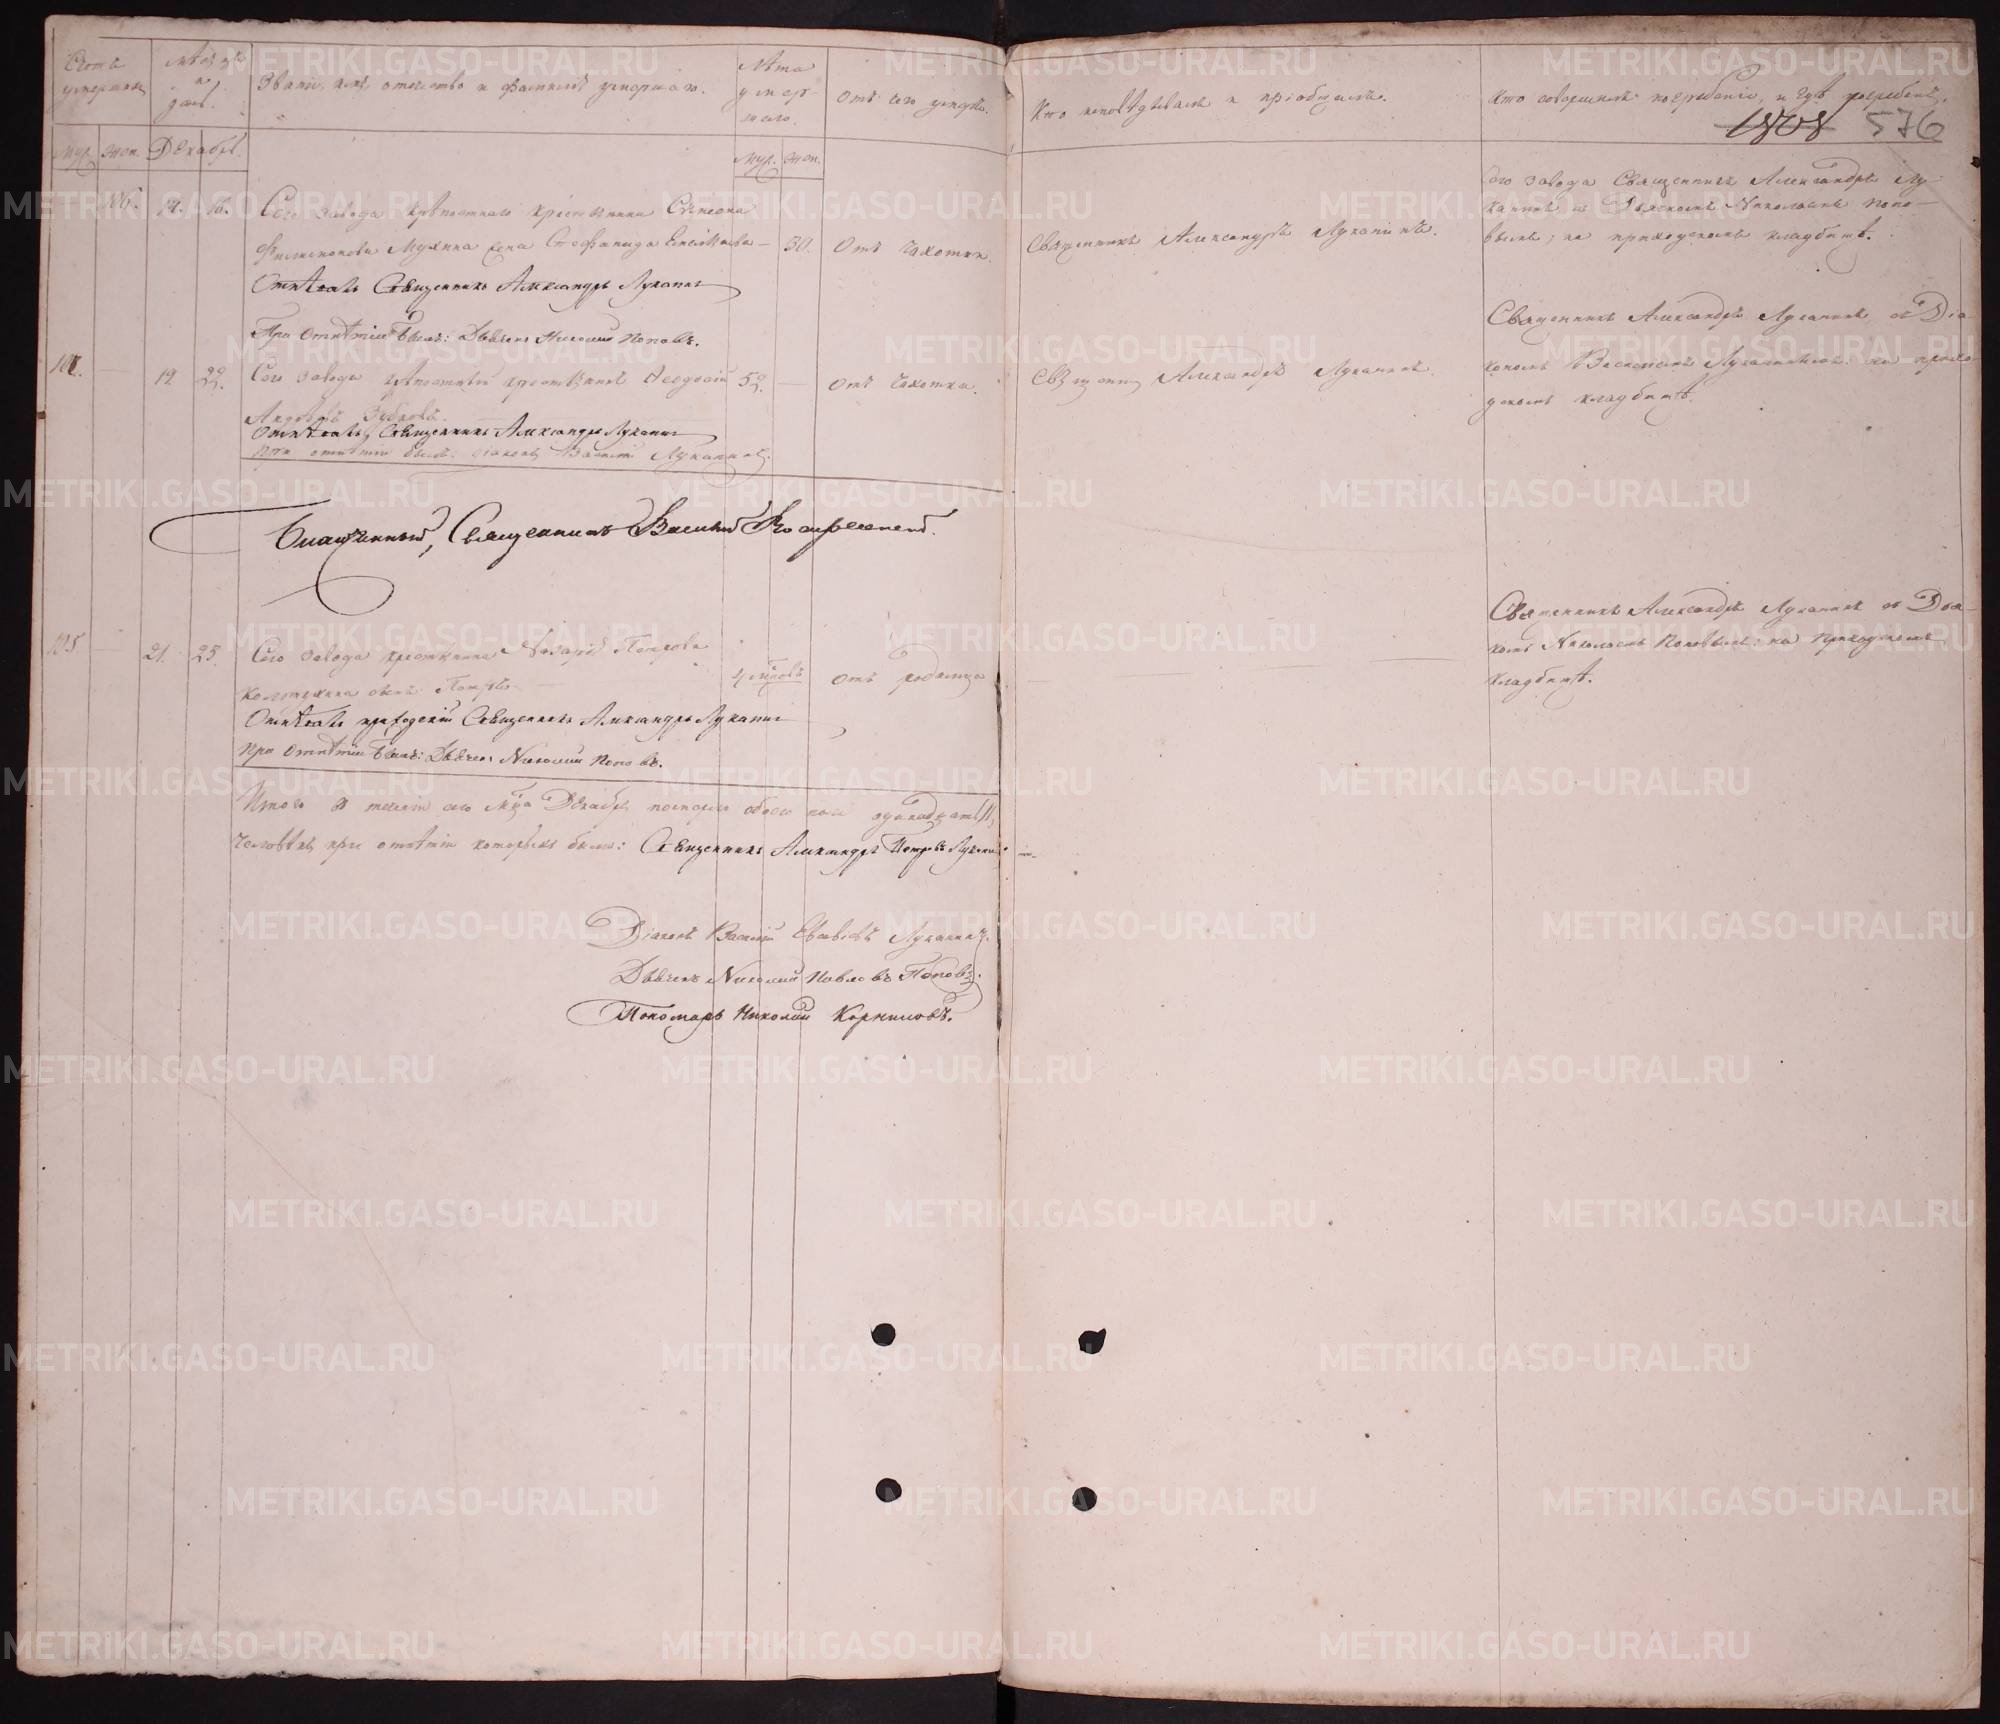 Счетъ умершихъ
Мѣсяцъ и день.
Званіе, имя, отчество и фамилія умершаго.
Лѣта умершаго.
Отъ чего умеръ.
Кто исповѣдывалъ и пріобщалъ.
Кто совершалъ погребеніе, и гдѣ погребенъ.
576
Муж. Жен. Декабрь.
Муж. Жен.
106. 14. 16.
Сего завода крѣпостнаго крестьянина Симеона
Филимонова Мухина жена Стефанида
30. Отъ чахотки.
Священникъ Александръ Луканинъ.
Сего завода Священникъ Александръ Лу-
канинъ съ Дьячкомъ Николаемъ Попо-
вымъ; на приходскомъ кладбищѣ.
Отпѣвалъ Священникъ Александръ Луканинъ
При отпѣтіи былъ: Дьячекъ Николай Поповъ.
19. 22.
Сего завода крѣпостный крестьянинъ Ѳеодосій
Зубковъ.
52. Отъ чахотки.
Священникъ Александръ Луканинъ.
Священникъ Александръ Луканинъ съ Діа-
кономъ Василіемъ Луканинымъ: на прихо-
дскомъ кладбищѣ.
Отпѣвалъ Священникъ Александръ Луканинъ
При отпѣтіи былъ: Діаконъ Василій Луканинъ.
Благочинный, Священникъ Василій
105 21. 25.
Сего завода крестьянина Назарія Петрова
сынъ Петръ
Отъ родимца
Священникъ Александръ Луканинъ съ Дьяч-
комъ Николаемъ Поповымъ: на приходскомъ
кладбищѣ.
Отпѣвалъ приходскій Священникъ Александръ Луканинъ
При отпѣтіи былъ: Дьячекъ Николай Поповъ.
Итого въ теченіи сего мѣсяца Декабря померло обоего пола одинадцать 11,
человѣкъ, при отпѣтіи которыхъ были: Священникъ Александръ Петровъ Луканинъ
Діаконъ Василій Луканинъ.
Дьячекъ Николай Павловъ Поповъ.
Пономарь Николай Корниловъ.
METRIKI.GASO-URAL.RU